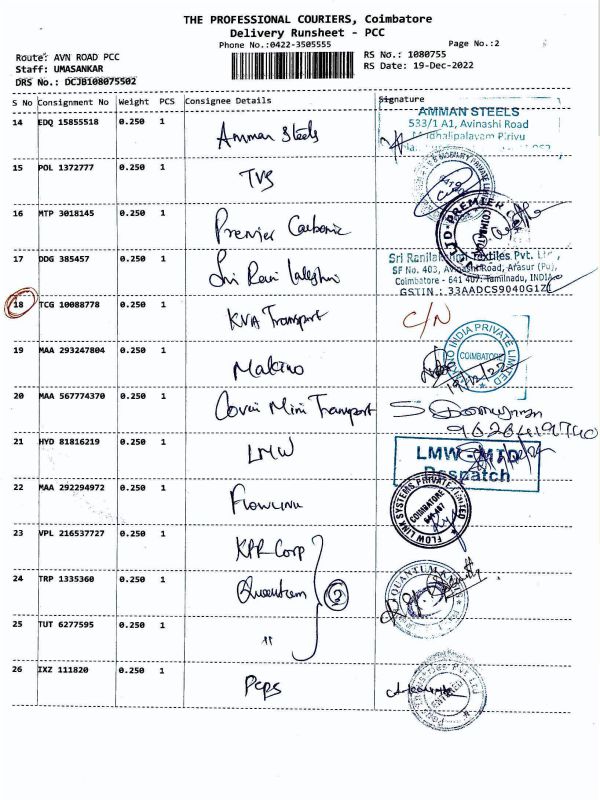 THE PROFESSIONAL COURIERS, Coimbatore
Delivery Runsheet - PCC
Phone No.:0422-3505555
Page No.:2
Route: AVN ROAD PCC
RS No.: 1080755
Staff: UMASANKAR
RS Date: 19-Dec-2022
DRS No.: DCJB108075502
S No Consignment No Weight PCS Consignee Details Signature
14 EDQ 15855518 0.250 1 Amman Steels
AMMAN STEELS
533/1 A1, Avinashi Road
15 POL 1372777 0.250 1 TVS
16 MTP 3018145 0.250 1 Premier Carbonic
17 DDG 385457 0.250 1 Sri Rani Lakshmi
Sri Ranilakshmi Textiles Pvt. Ltd.,
SF No. 403, Avinashi Road, Arasur (Po),
Coimbatore - 641 407. Tamilnadu, INDIA
GSTIN : 33AADCS9040G1Z1
18 TCG 10088778 0.250 1 KVA Transport C/N
19 MAA 293247804 0.250 1 Makino
INDIA PRIVATE LIMITED
COIMBATORE
19/12/22
20 MAA 567774370 0.250 1 Covai Mini Transport
21 HYD 81816219 0.250 1 LMW
LMW - MTD
Despatch
22 MAA 292294972 0.250 1 Flowlink
FLOW LINK SYSTEMS PRIVATE LIMITED
COIMBATORE
641 407
23 VPL 216537727 0.250 1 KPR Corp
24 TRP 1335360 0.250 1 Quantum 2
QUANTUM
25 TUT 6277595 0.250 1 "
26 IXZ 111820 0.250 1 Peps